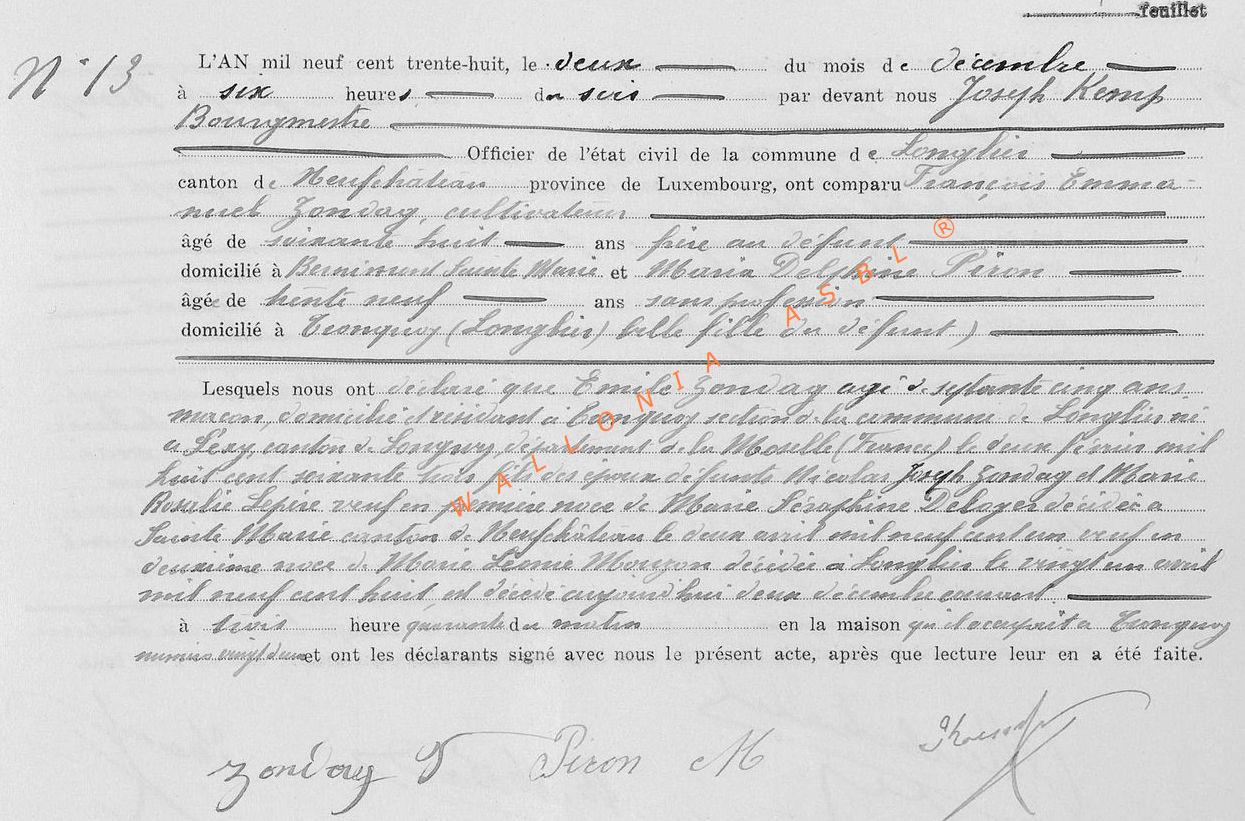 feuillet
N° 13
L'AN mil neuf cent trente-huit, le deux du mois de décembre
à six heures du soir par devant nous Joseph Kemp
Bourgmestre
Officier de l'état civil de la commune de Longlier
canton de Neufchâteau province de Luxembourg, ont comparu François Emma-
nuel Zondag, cultivateur
âgé de soixante huit ans frère au défunt
domicilié à Bernimont Sainte Marie et Maria Delphine Piron
âgé de trente neuf ans sans profession
domicilié à Tronquoy (Longlier) belle fille du défunt)
Lesquels nous ont déclaré que Emile Zondag agé de septante cinq ans
maçon, domicilié et résidant à Tronquoy section de la commune de Longlier né
à Lexy canton de Longwy, département de la Moselle (France) le deux février mil
huit cent soixante trois fils des époux défunts Nicolas Joseph Zondag et Marie
Rosalie Lepère veuf en première noce de Marie Séraphine Deloyer décédée à
Sainte Marie canton de Neufchâteau le deux avril mil neuf cent un veuf en
deuxième noce de Marie Léonie Mouzon décédée à Longlier le vingt un avril
mil neuf cent huit, est décédé aujourd'hui deux décembre courant
à trois heure quarante du matin en la maison qu'il occupait à Tronquoy
numero vingt deux et ont les déclarants signé avec nous le présent acte, après que lecture leur en a été faite.
Zondag Piron M Kemp
WALLONIA ASBL ®